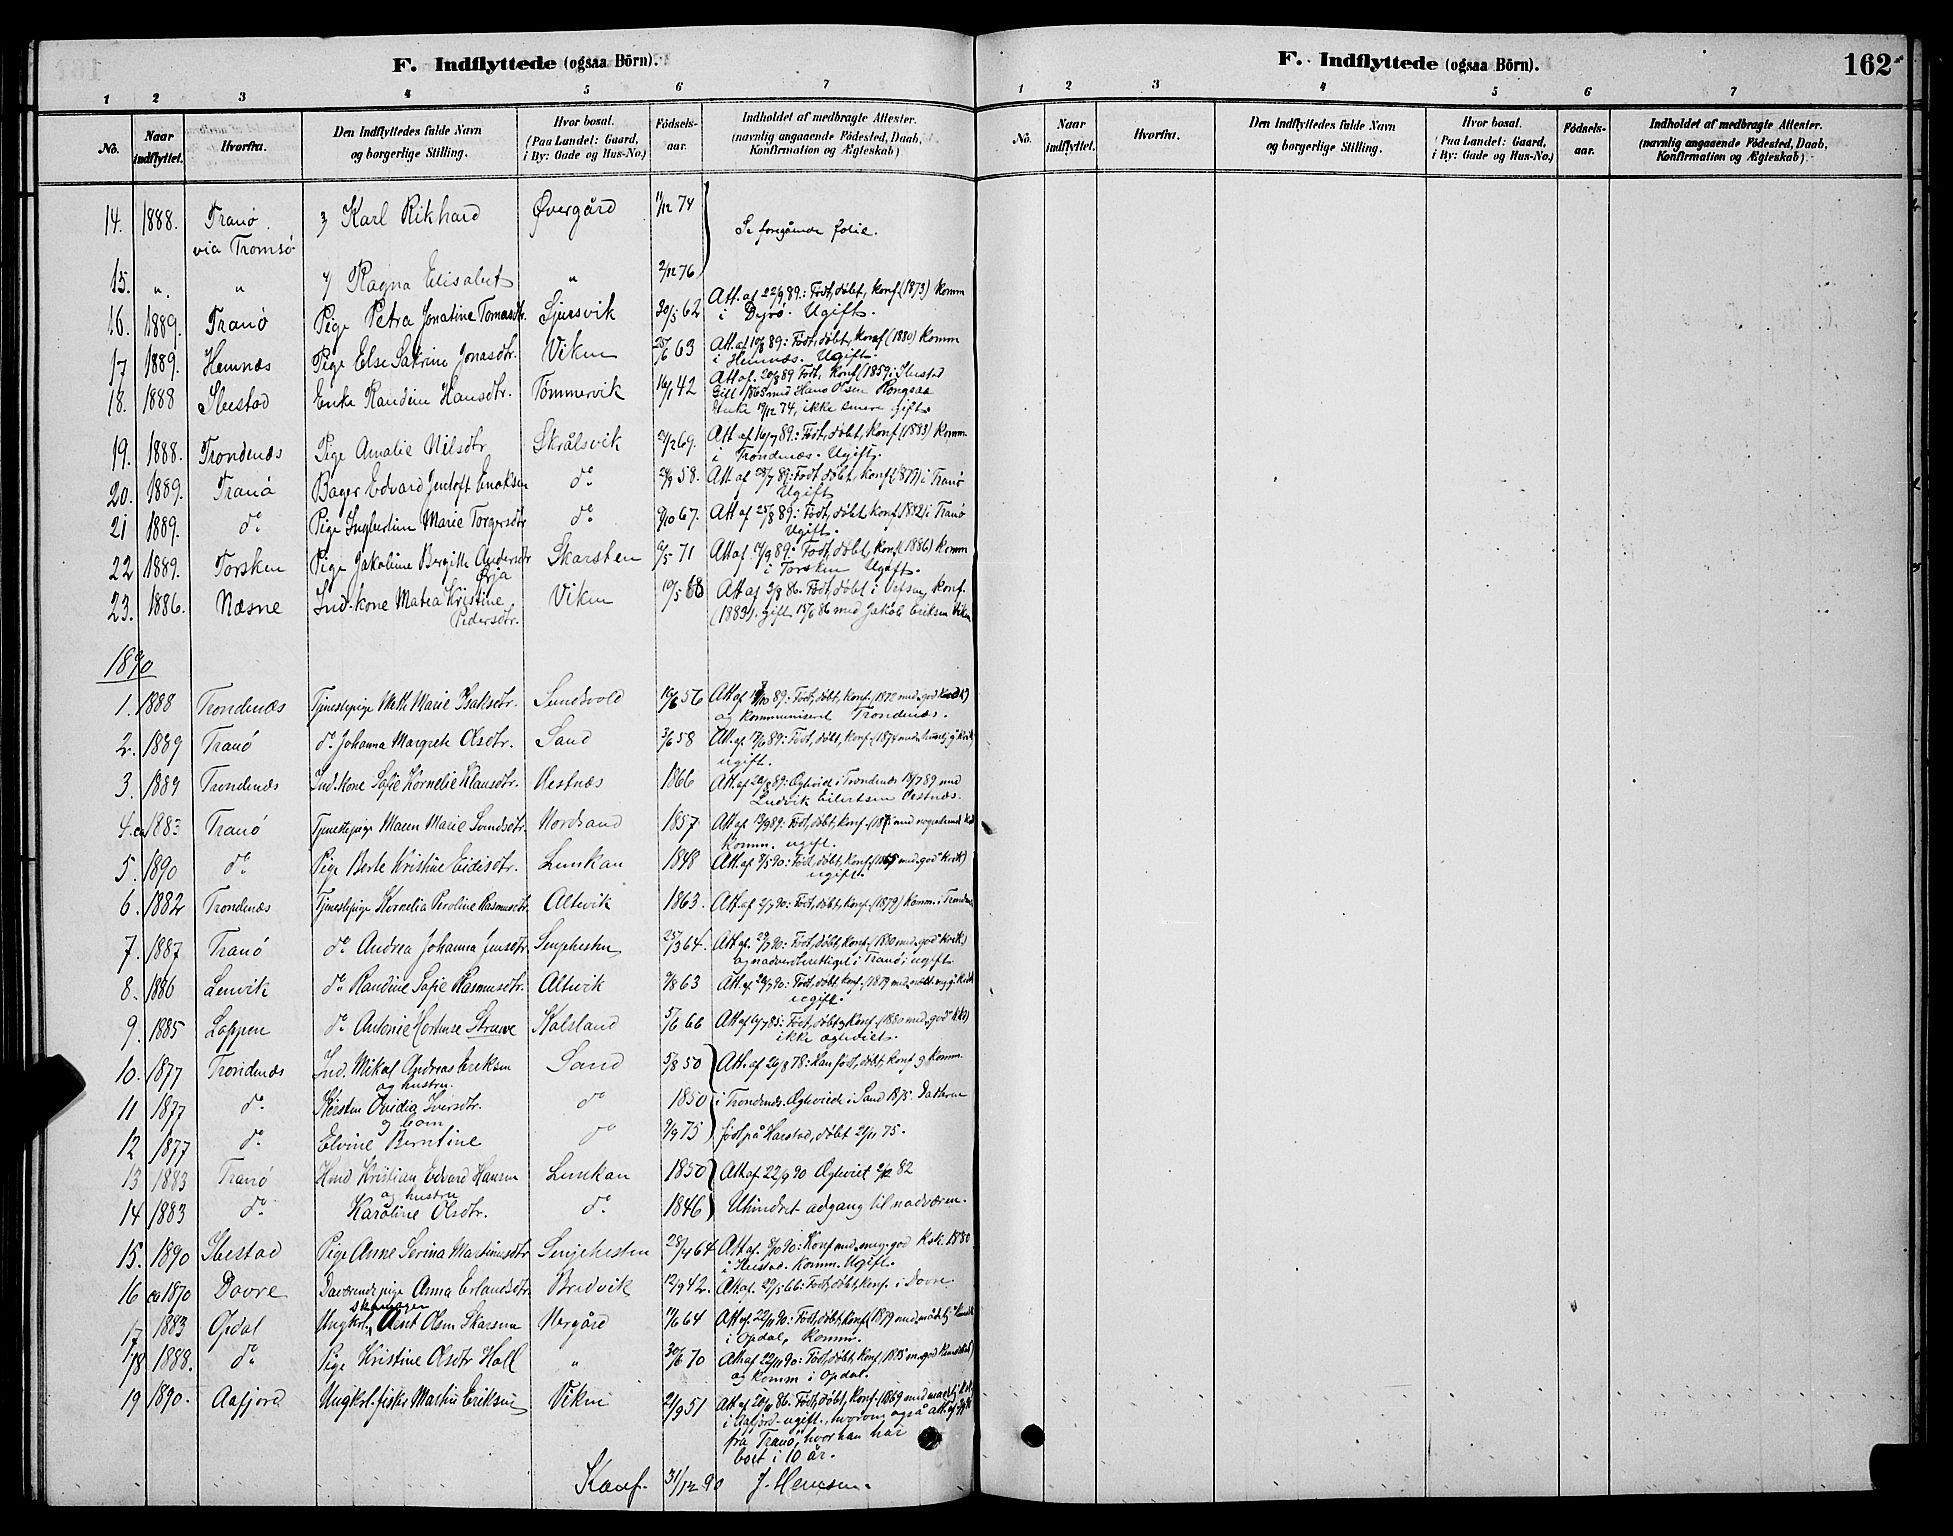 F. Indflyttede (ogsaa Börn).
1 2 3 4 5 6 7
No. Naar indflyttet. Hvorfra. Den Indflyttedes fulde Navn og borgerlige Stilling. Hvor bosat. (Paa Landet: Gaard, i By: Gade og Hus-No.) Födsels-aar. Indholdet af medbragte Attester. (navnlig angaaende Födested, Daab, Konfirmation og Ægteskab)
14. 1888. Tranö via Tromsö 3 Karl Rikhard Övergård 11/12 74 Se foregående folie.
15. " " 4 Ragna Elisabet " 2/12 76
16. 1889. Tranö Pige Petra Jonatine Tomasdtr. 30/5 62 Att. af 22/9 89: Födt, döbt, konf. (1873) komm
i Dyrö. Ugift.
17 1889. Hemnæs Pige Else Jonasdtr. Viken 25/6 63 Att. af 10/8 89: Födt, döbt, konf (1880) komm
i Hemnæs. Ugift.
18. 1888 Ibestad Enke Hansdtr. Tömmervik 16/1 42 Att af. 20/8 89 Födt, konf (1859 i Ibestad
Gift 1865 med Hans Olsen
Enke 19/12 74, ikke senere gift
19. 1888. Trondenæs Pige Amalie Nilsdtr Skrålsvik 69. Att af 16/7 89: Födt, döbt, konf (1883) Komm.
i Trondenæs. Ugift.
20. 1889. Tranö Bager Edvard Jentoft Enoksen do 58. Att af 28/7 89: Födt döbt, konf (1873) i Tranö
Ugift
21 1889. do Pige Marie Torgersdtr do 9/10 67. Att af 25/8 89: Födt, döbt, konf (1882) i Tranö
Ugift.
22 1889. Torsken Pige Jakobine Bergitte Andersdtr Skarsten 6/5 71 Att af 89: Födt, döbt, konf (1886) komm
i Torsken Ugift.
23. 1886. Næsne Ind. kone Matea Kristine Pedersdtr. Viken 19/5 68 Att af 3/8 86. Födt, döbt i Vefsen, konf.
(1883). gift 15/6 86 med Jakob Eriksen Viken
1890
1. 1888 Trondenæs Tjenestepige Marie Isaksdtr. Sundsvold 16/6 56 Att af 89: Födt, döbt, konf. 1872 med god kvdsk)
og kommuniseret Trondenæs.
2. 1889 Tranö do Johanna Margrete Olsdtr. Sand 3/6 58 Att. af 17/6 89: Födt, döbt, konf. (1874 med
ugift.
3. 1889 Trondenæs Ind. kone Sofie Kornelie Klausdtr. Vestnæs 1866 Att. af 89: Ægteviede i Trondenæs 18/7 89 med
Ludvik Eilertsen Vestnæs.
4. ca 1883 Tranö Tjenestepige Maren Marie Svendsdtr. Nordsand 1857 Att. af 13/9 89: Födt, döbt, konf.
komm. ugift.
5 1890 do Pige Berte Kristine Eidisdtr. Lemkan 1848 Att. af 7/5 90: Födt, döbt, konf. (1865 med god kvdsk)
ugift.
6. 1882 Trondenæs Tjenestepige Kornelia Peroline Rasmusdtr Altevik 1863. Att. af 2/7 90: Födt, döbt, konf. (1879) komm. i Trondenæs
7. 1887 Tranö do Andrea Johanna Jensdtr Senjehesten 25/3 64. Att. af. 29/7 90: Födt, döbt, konf. (1880 med god kvdsk)
og nadverberettiget i Tranö; ugift.
8. 1886 Lenvik do Randine Sofie Rasmusdtr. Altevik 9/8 63 Att. af 29/7 90: Födt, döbt, konf. (1879
ugift.
9. 1885 Loppen do Antonie Hortense Struwe Kalsland 5/6 66 Att af 6/7 85: Födt, döbt og konf. (1880 med god kdsk)
ikke ægteviet.
10. 1877 Trondenæs Ind. Mikal Andreas Eriksen og hustru Sand 5/8 50 Att. af 26/8 78: Han födt, döbt, konf. og komm.
11 1877 do. Kersten Ovidia Iversdtr. og barn do 1850 i Trondenæs. Ægteviede i Sand 1875 Datteren
12 1877 do. Elvine Berntine do 9/9 75 födt på Harstad, döbt 21/11 75.
13 1883 Tranö Hmd Kristian Edvard Hansen og hustru Lemkan 1850 Att. af 22/9 90 Ægteviet 82
14 1883 do. Karoline Olsdtr. do. 1846 Uhindret adgang til nadveren.
15. 1890 Ibestad Pige Anne Serina Martinusdtr Senjehesten 28/4 64 Att af. 8/10 90: Konf med meg. god ksk. 1880
i Ibestad. Komm. Ugift.
16 ca 1870 Dovre pige Anna Erlandsdtr Bredvik 12/9 42. Att. af. 29/5 66: Födt, döbt, konf. i Dovre.
17 1883 Opdal Ungkrl. skomager Arnt Olsen Skarsem Vergård 11/6 64 Att. af. 22/11 90: Födt, döbt, konf. (1879 med
i Opdal, Komm.
18 1888. do Pige Kristine Olsdtr Holl " 30/6 70 Att af 22/11 90: Födt, döbt, konf. 1885 m. god kundskab)
og komm i Opdal.
19 1890. Aafjord Ungkrl. fisker Martin Eriksen Viken 2/9 51 Att. af 20/11 86: Födt, döbt, konf. (1869 med
i Aafjord - ugift., hvorom også att. af
fra Tranö, hvor han har
boet i 10 år.
Kanf. 31/12 90
F. Indflyttede (ogsaa Börn).
162
1 2 3 4 5 6 7
No. Naar indflyttet. Hvorfra. Den Indflyttedes fulde Navn og borgerlige Stilling. Hvor bosat. (Paa Landet: Gaard, i By: Gade og Hus-No.) Födsels-aar. Indholdet af medbragte Attester. (navnlig angaaende Födested, Daab, Konfirmation og Ægteskab)